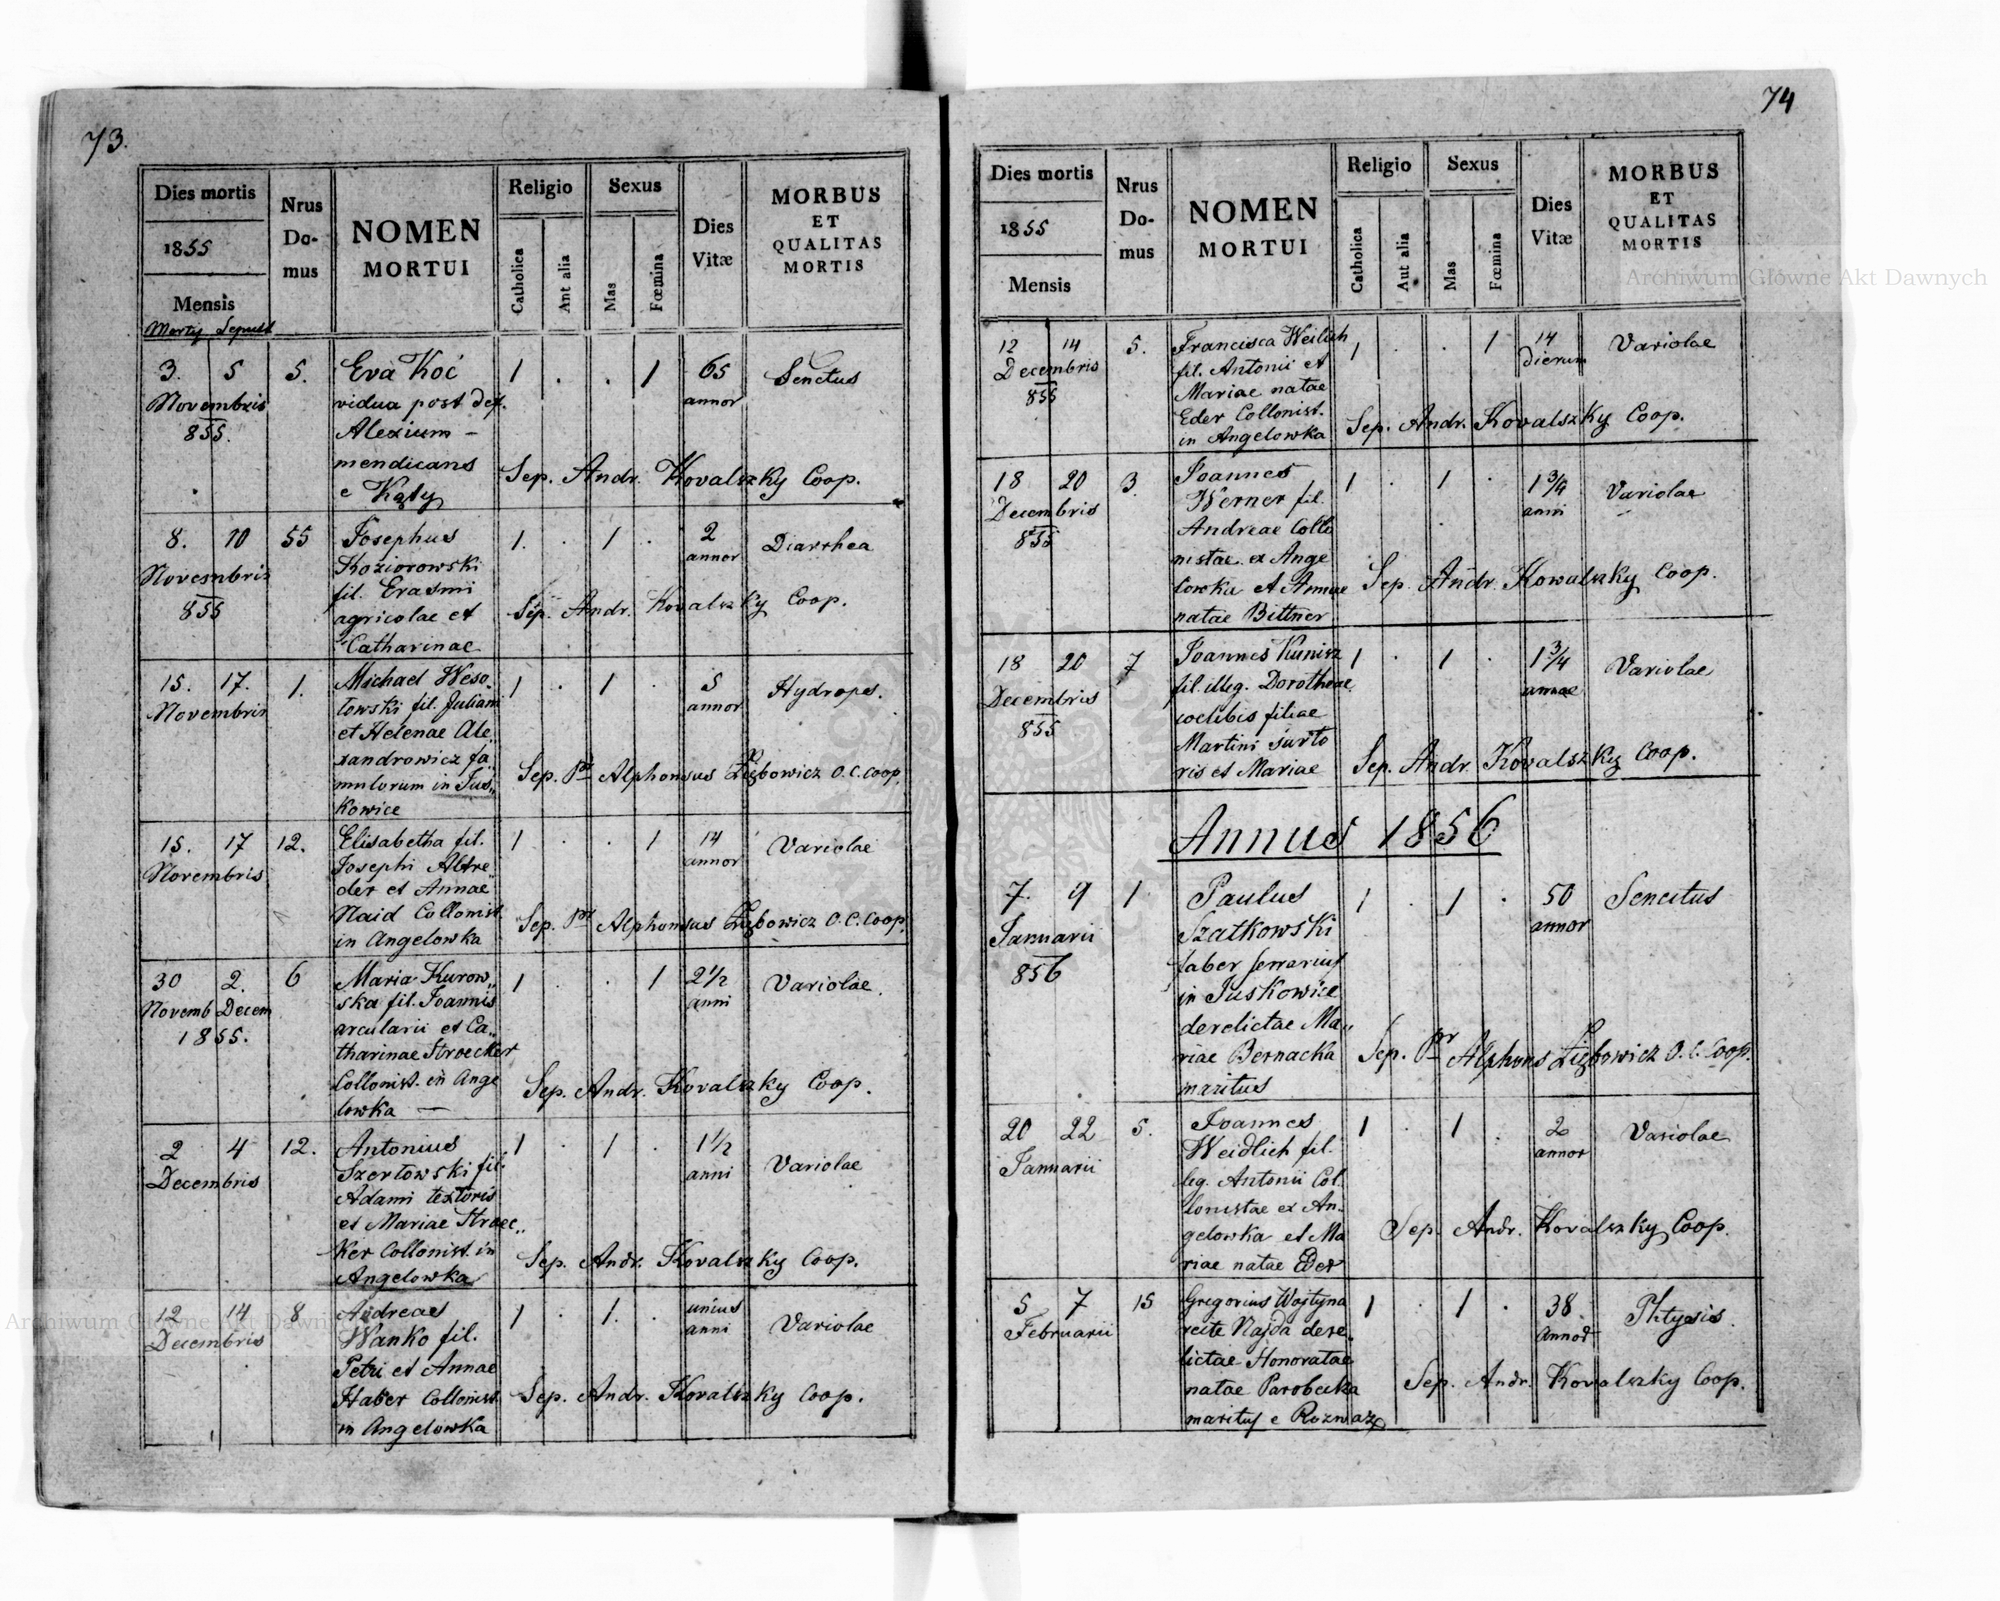 73.
Dies mortis
1855
Mensis
Morty Sepult
Nrus
Do-
mus
NOMEN
MORTUI
Religio
Catholica
Aut alia
Sexus
Mas
Fœmina
Dies
Vitæ
MORBUS
ET
QUALITAS
MORTIS
3. 5 5. Eva Koć 1 . . 1 65 Senctus
Novembris vidua post def. annor
855. Alexium –
mendicans Sep. Andr. Kovalszky Coop.
e Kąty
8. 10 55 Josephus 1. . 1 . 2 Diarrhea
Novembris Koziorowski annor
855 fil. Erasmi
agricolae et Sep. Andr. Kovalszky Coop.
Catharinae
15. 17. 1. Michael Weso„ 1 . 1 . 5 Hydrops.
Novembris łowski fil. Juliani annor
et Helenae Ale„
xandrowicz fa„ Sep. Pr Alphonsus Ziębowicz O.C. Coop.
mulorum in Jus„
kowice
15. 17 12. Elisabetha fil. 1 . . 1 14 Variolae
Novembris Josephi Altre„ annor
der et Annae
Naid Collonist. Sep. Pr Alphonsus Ziębowicz O.C. Coop.
in Angelowka
30 2. 6 Maria Kurow„ 1 . . 1 2½ Variolae.
Novemb Decem ska fil. Joannis anni
1855. arcularii et Ca„
tharinae Stroecker
Collonist. in Ange Sep. Andr. Kovalszky Coop.
lowka —
2 4 12. Antonius 1 . 1 . 1½ Variolae
Decembris Szertowski fil. anni
Adami textoris
et Mariae Stroec„
ker Collonist. in Sep. Andr. Kovalszky Coop.
Angelowka
12 14 8 Andreas 1 . 1. . unius Variolae
Decembris Wanko fil. anni
Petri et Annae
Haber Collonist. Sep. Andr. Kovalszky Coop.
in Angelowka
74
Dies mortis
1855
Mensis
Nrus
Do-
mus
NOMEN
MORTUI
Religio
Catholica
Aut alia
Sexus
Mas
Fœmina
Dies
Vitæ
MORBUS
ET
QUALITAS
MORTIS
12 14 5. Francisca Weilich 1 . . 1 14 Variolae
Decembris fil. Antonii et dierum
855 Mariae natae
Eder Collonist. Sep. Andr. Kovalszky Coop.
in Angelowka
18 20 3. Joannes 1 . 1 . 1¾ Variolae
Decembris Werner fil. anni
855 Andreae Collo
nistae ex Ange
lowka et Annae Sep. Andr. Kowalszky Coop.
natae Bittner
18 20 7 Joannes Kunisz 1 . 1 . 1¾ Variolae
Decembris fil. illeg. Dorotheae
855 coelibis filiae
Martini sarto
ris et Mariae Sep. Andr. Kovalszky Coop.
Annus 1856
7. 9 1 Paulus 1 . 1 . 50 Senectus
Januarii Szatkowski annor
856 faber ferrarius
in Juskowice
derelictae Ma„
riae Bernacka Sep. Pr Alphons Ziębowicz O.C. Coop.
maritus
20 22 5. Joannes 1 . 1 . 2 Variolae
Januarii Weidlich fil. annor
leg. Antonii Col.
lonistae ex An.
gelowka et Ma Sep. Andr. Kovalszky Coop.
riae natae Eder
5 7 15 Gregorius Wojtyna 1 . 1 . 38 Phtysis.
Februarii recte Najda dere„ annor
lictae Honoratae
natae Parobecka Sep. Andr. Kovalszky Coop.
maritus e Rozważ
Archiwum Główne Akt Dawnych
Archiwum Główne Akt Dawnych